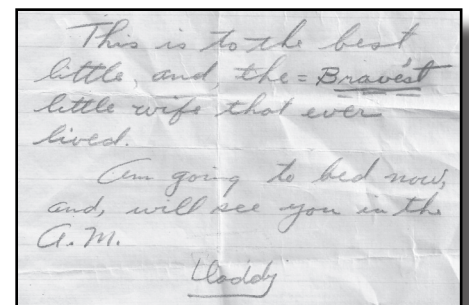 This is to the best
little, and, the = Bravest
little wife that ever
lived.
Am going to bed now,
and, will see you in the
A.M.
Daddy